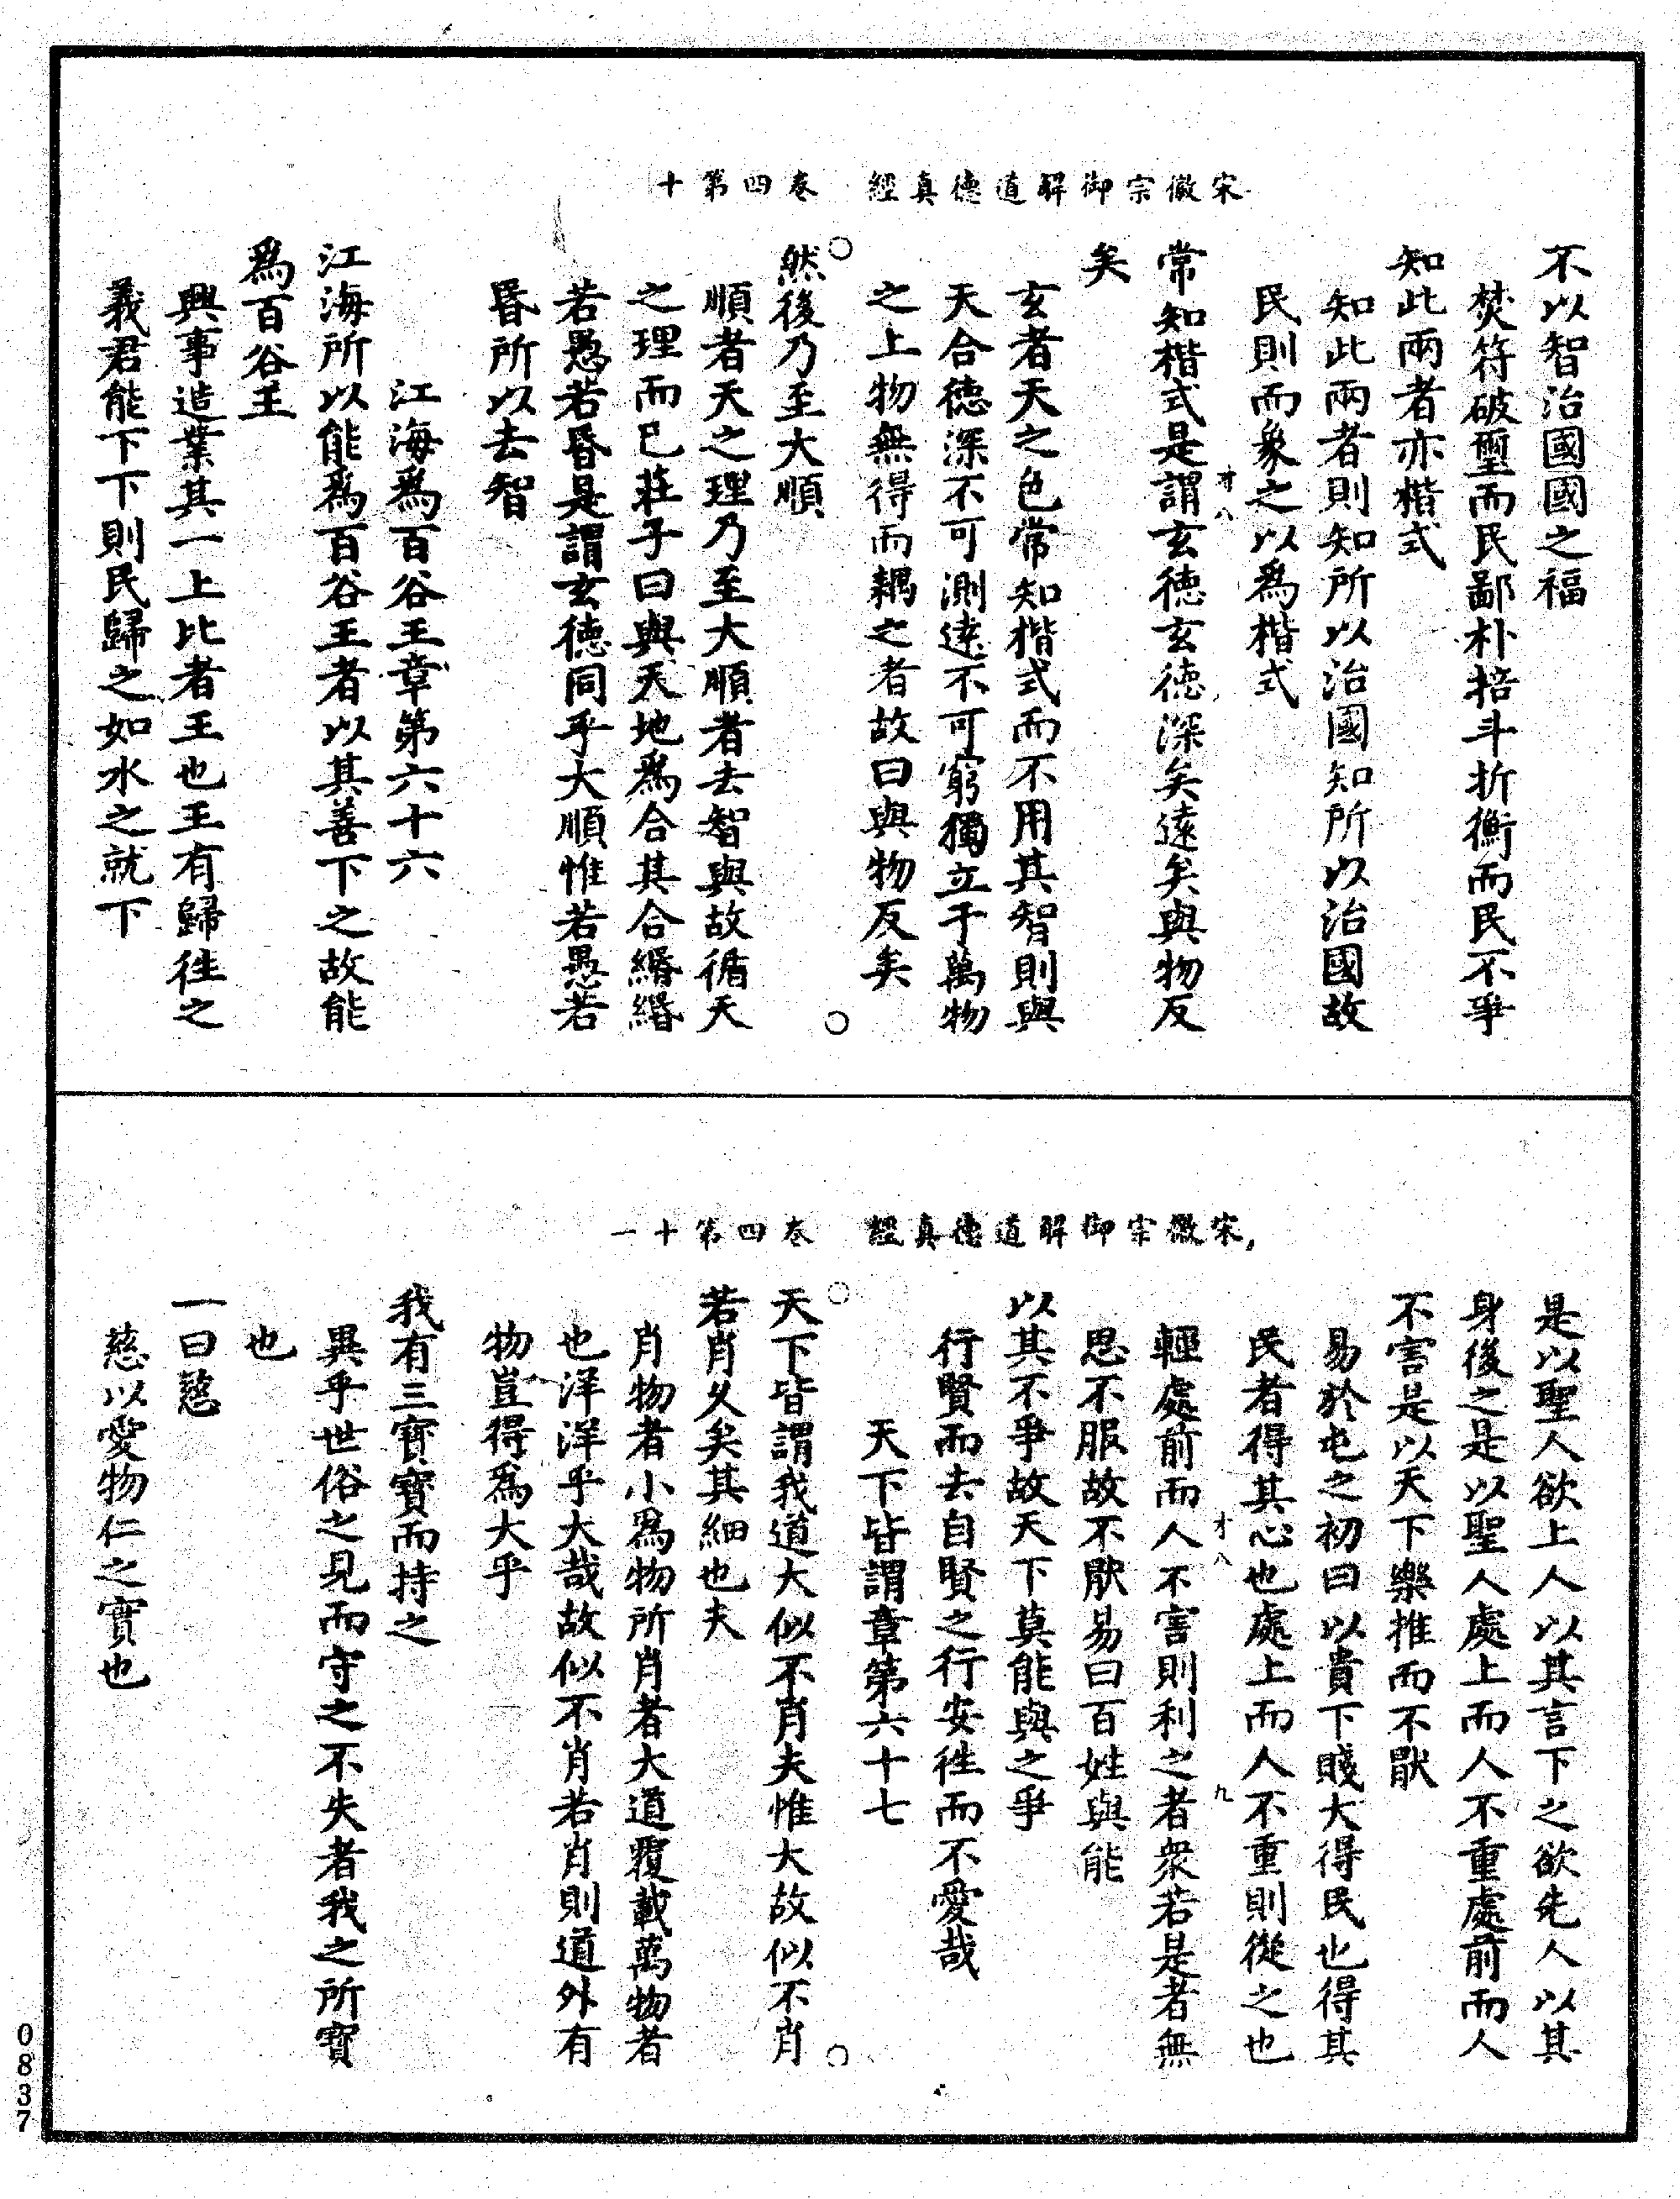 宋徽宗御解道德真經　卷四第十
不以智治國國之福
焚符破璽而民鄙朴掊斗折衡而民不爭
知此兩者亦楷式
知此兩者則知所以治國知所以治國故
民則而象之以爲楷式
才八
常知楷式是謂玄德玄德深矣遠矣與物反
矣
玄者天之色常知楷式而不用其智則與
天合德深不可測遠不可窮獨立于萬物
之上物無得而耦之者故曰與物反矣
然後乃至大順
順者天之理乃至大順者去智與故循天
之理而已莊子曰與天地爲合其合緡緡
若愚若昏是謂玄德同乎大順惟若愚若
昏所以去智
江海爲百谷王章第六十六
江海所以能爲百谷王者以其善下之故能
爲百谷王
興事造業其一上比者王也王有歸徃之
義君能下下則民歸之如水之就下
宋徽宗御解道德真經　卷四第十一
是以聖人欲上人以其言下之欲先人以其
身後之是以聖人處上而人不重處前而人
不害是以天下樂推而不猒
易於屯之初曰以貴下賤大得民也得其
民者得其心也處上而人不重則從之也
才八　九
輕處前而人不害則利之者衆若是者無
思不服故不猒易曰百姓與能
以其不爭故天下莫能與之爭
行賢而去自賢之行安徃而不愛哉
天下皆謂章第六十七
天下皆謂我道大似不肖夫惟大故似不肖
若肖久矣其細也夫
肖物者小爲物所肖者大道覆載萬物者
也洋洋乎大哉故似不肖若肖則道外有
物豈得爲大乎
我有三寳寳而持之
異乎世俗之見而守之不失者我之所寳
也
一曰慈
慈以愛物仁之實也
0837